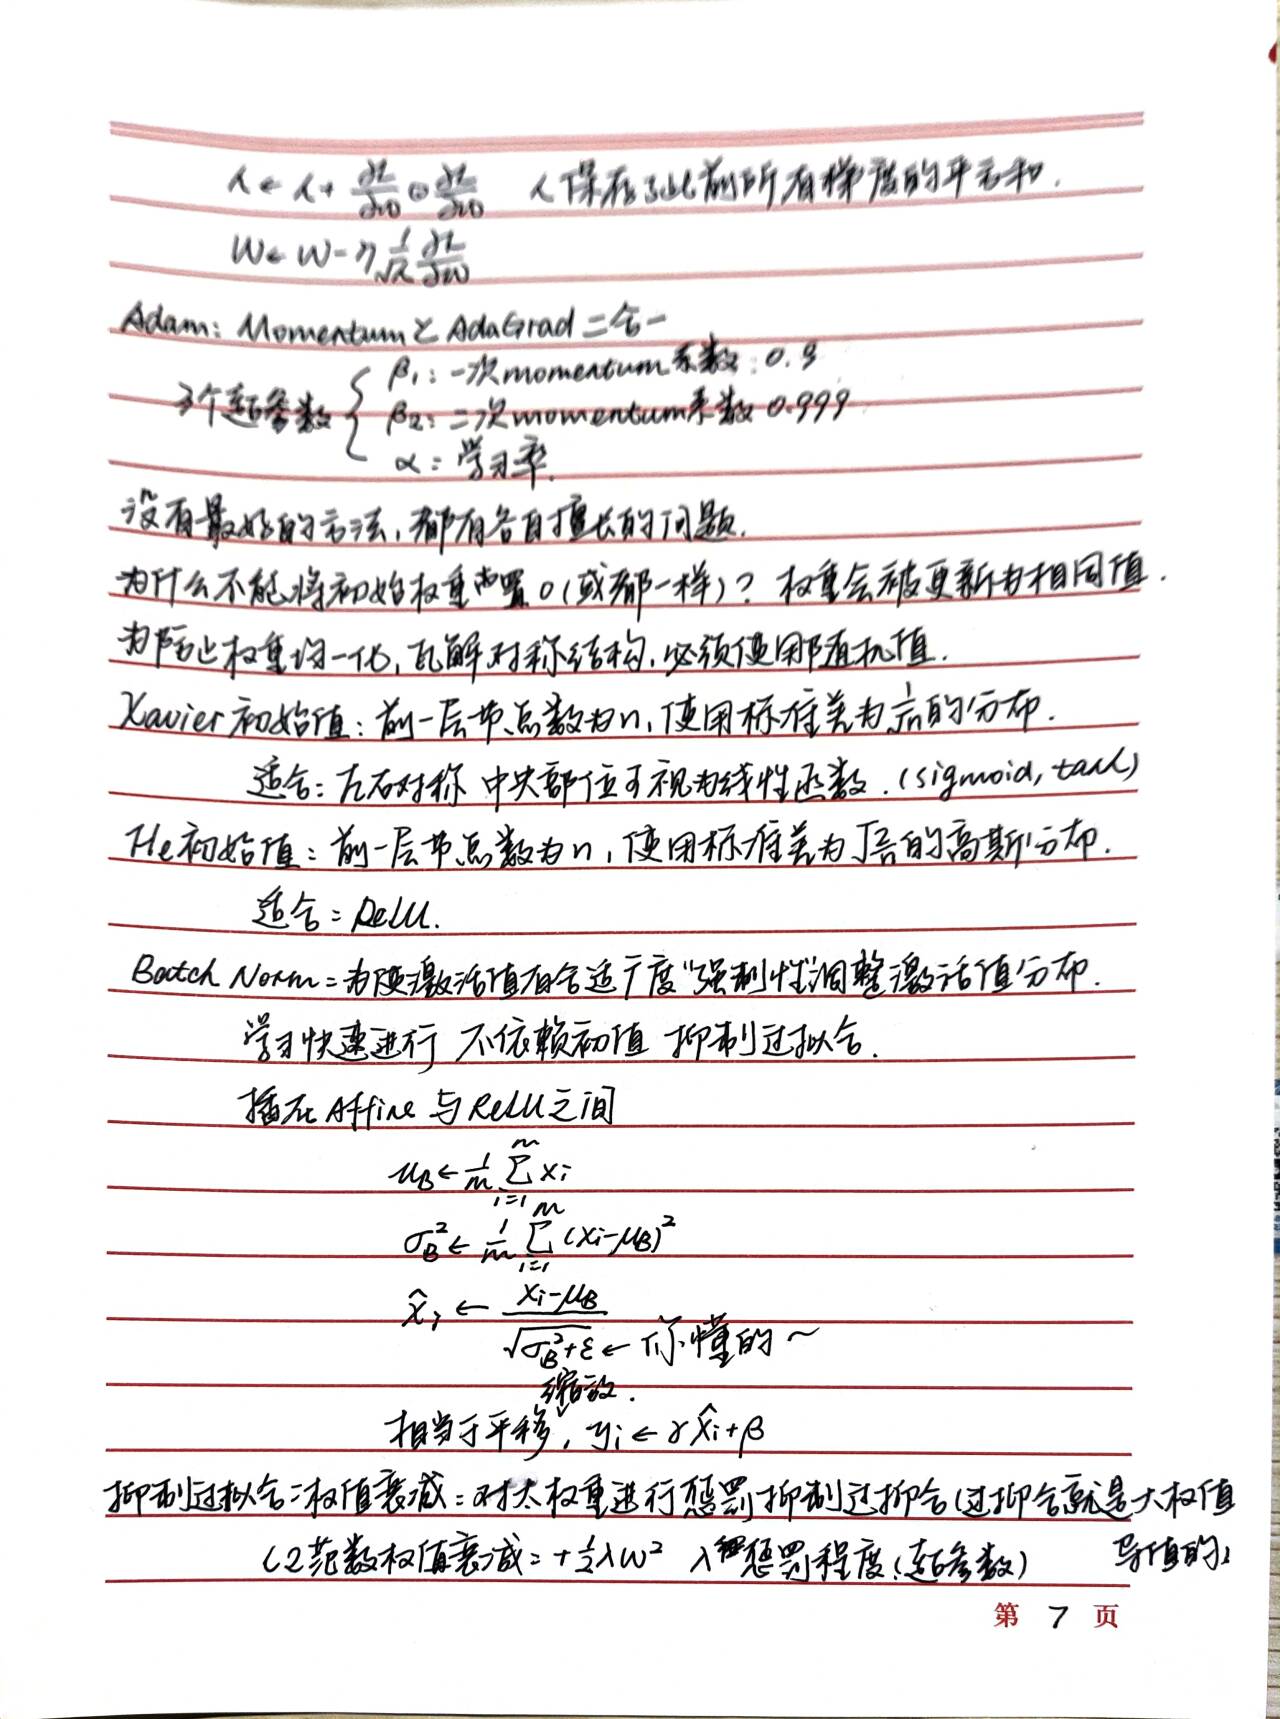 h ← h + ∂L/∂W ⊙ ∂L/∂W  h保存了此前所有梯度的平方和.
W ← W - η 1/√h ∂L/∂W
Adam: Momentum と AdaGrad 二合一
三个超参数 { β1: 一次momentum系数: 0.9
β2: 二次momentum系数 0.999
α: 学习率.
没有最好的方法, 都有各自擅长的问题.
为什么不能将初始权重设置0(或都一样)? 权重会被更新为相同值.
为防止权重均一化, 瓦解对称结构, 必须使用随机值.
Xavier初始值: 前一层节点数为n, 使用标准差为1/√n的分布.
适合: 左右对称 中央部位可视为线性函数. (sigmoid, tanh)
He初始值: 前一层节点数为n, 使用标准差为√2/n的高斯分布.
适合: ReLU.
Batch Norm: 为使激活值有合适广度"强制性"调整激活值分布.
学习快速进行 不依赖初值 抑制过拟合.
插在Affine与ReLU之间
μB ← 1/m Σ_{i=1}^{m} xi
σB² ← 1/m Σ_{i=1}^{m} (xi-μB)²
x̂i ← (xi-μB)/√(σB²+ε) ← 你懂的~
缩放.
相当于平移, yi ← γx̂i+β
抑制过拟合: 权值衰减: 对大权重进行惩罚抑制过抑合(过抑合就是大权值
L2范数权值衰减: +½λW² λ惩罚程度(超参数) 导值的)
第 7 页